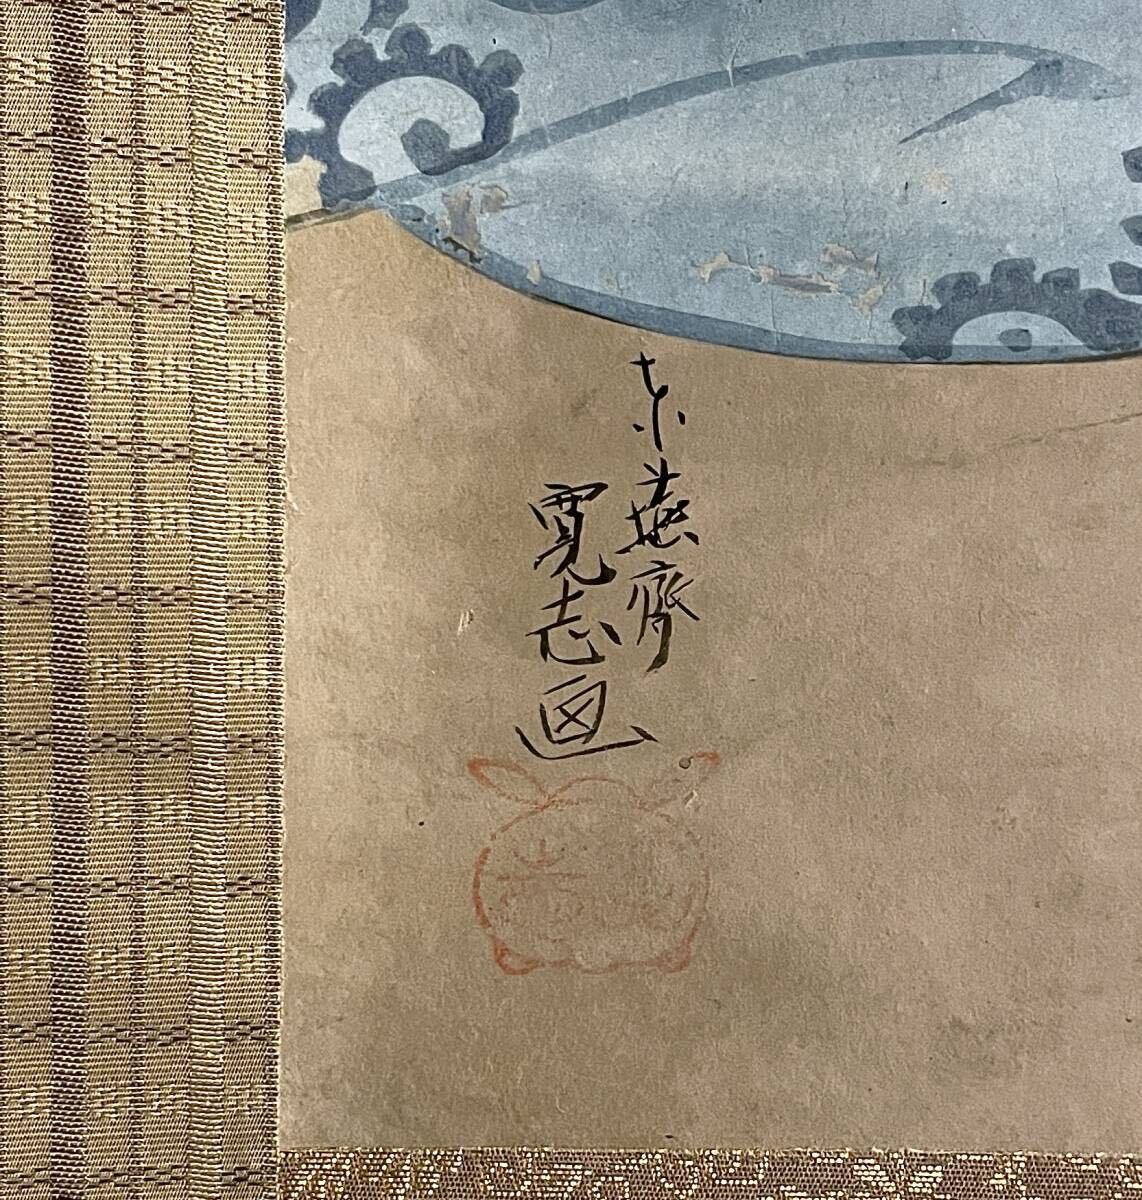 東燕齋
寛志画